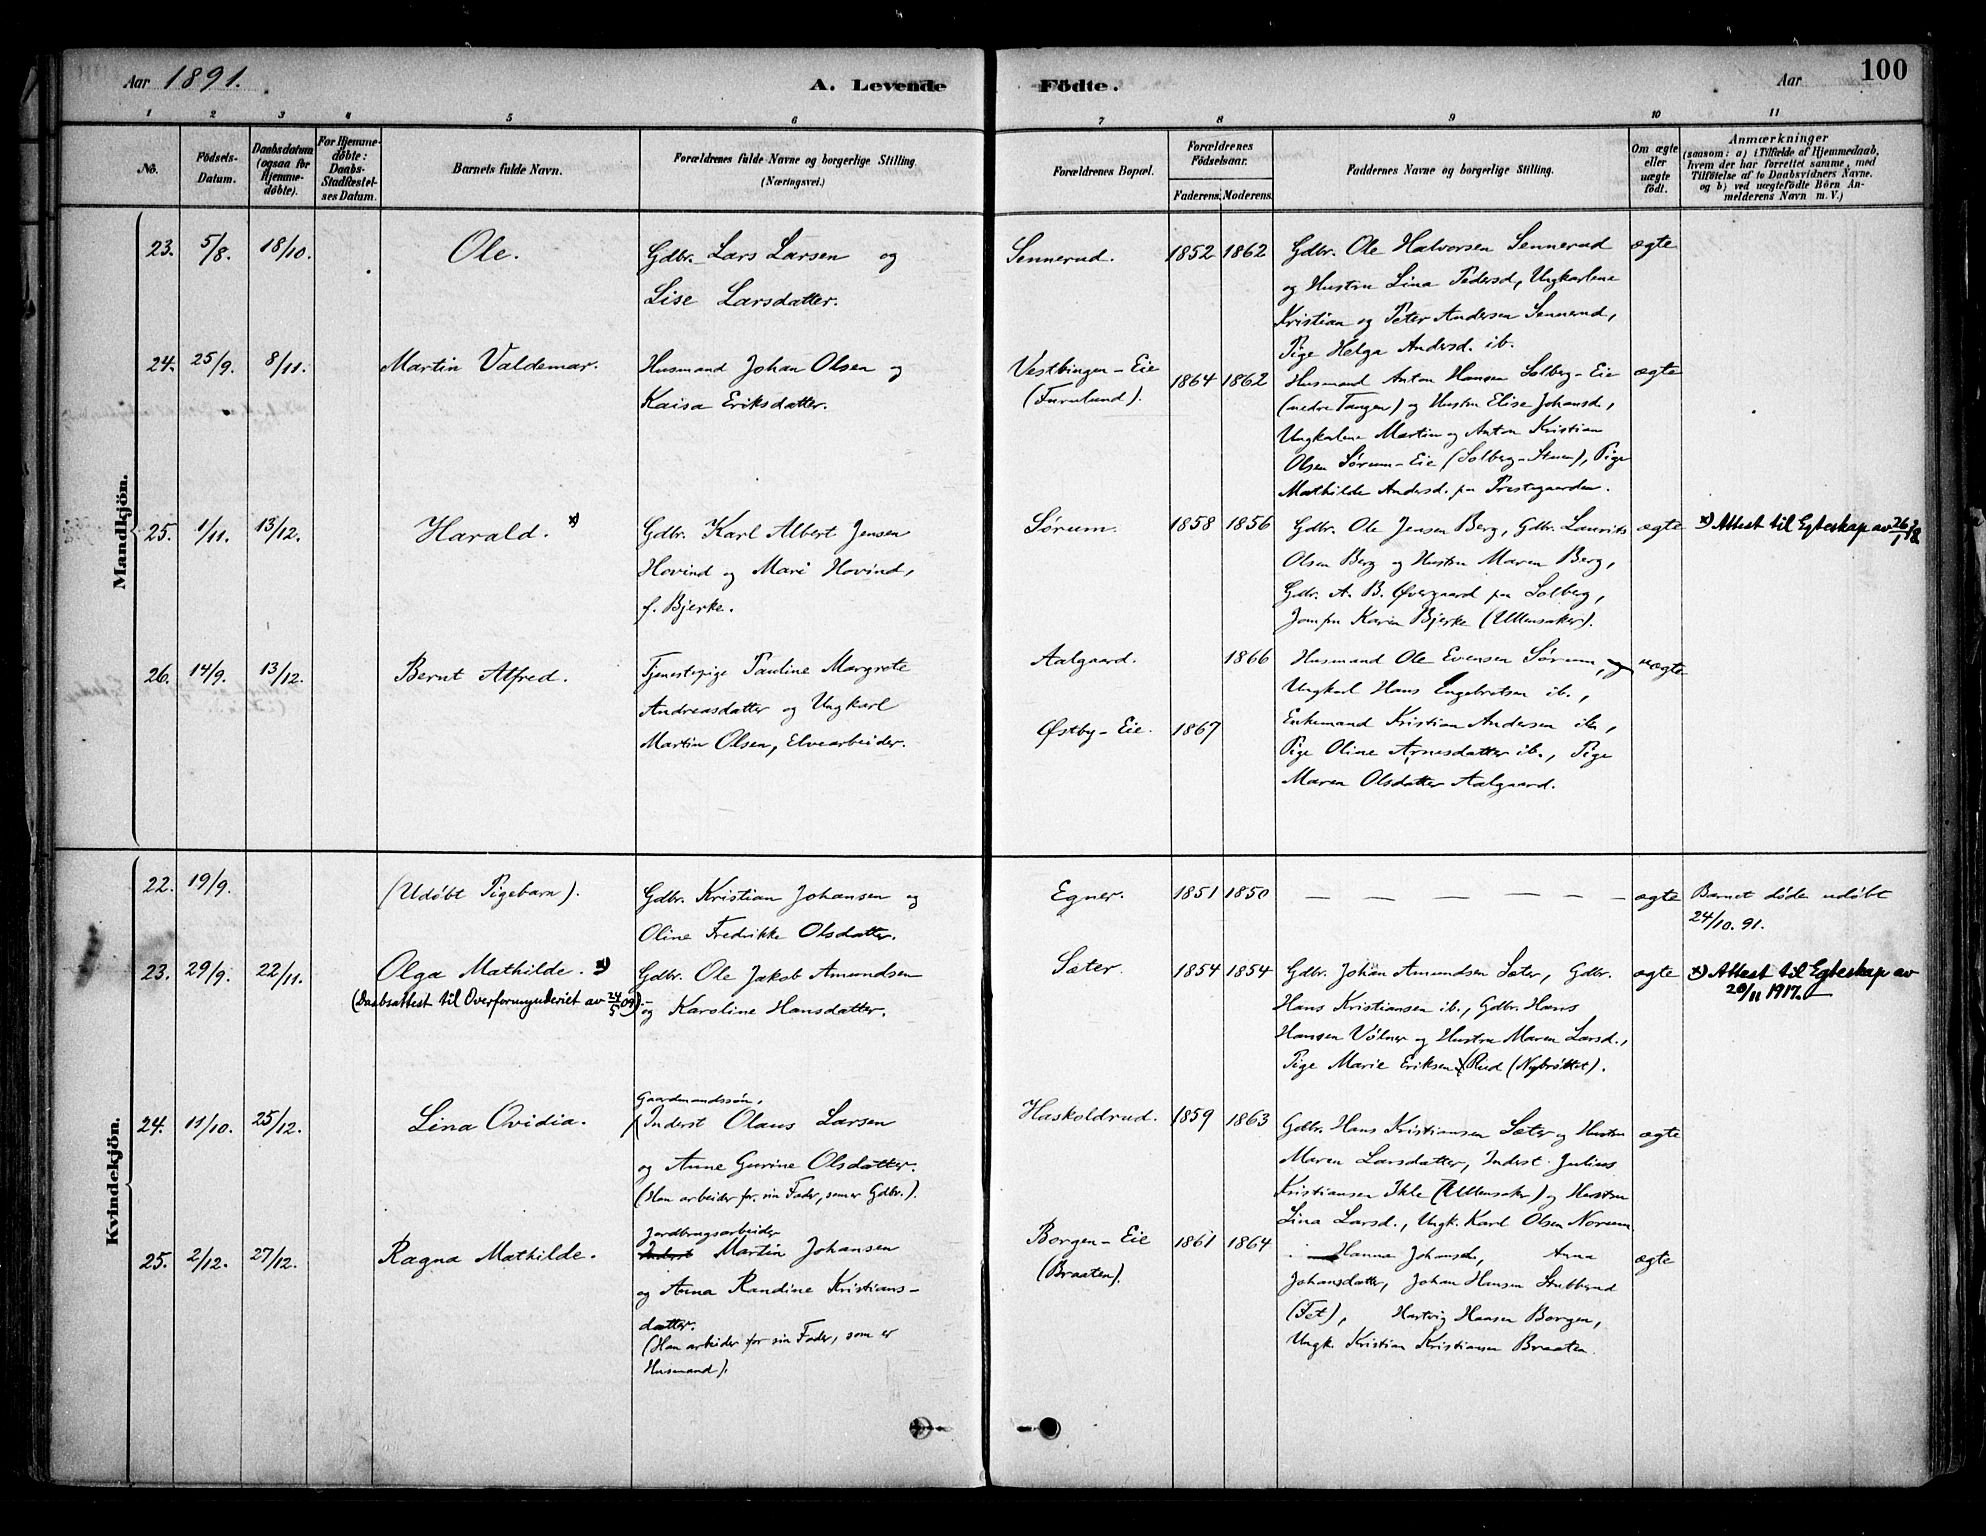 Aar 1891. A. Levende Födte. Aar 100
1 2 3 4 5 6 7 8 9 10 11
No.
Födsels-Datum.
Daabsdatum (ogsaa for Hjemme-döbte).
For Hjemme-döbte: Daabs-Stadfæstel-ses Datum.
Barnets fulde Navn.
Forældrenes fulde Navne og borgerlige Stilling. (Næringsvei.)
Forældrenes Bopæl.
Forældrenes Födselsaar.
Faderens. Moderens.
Faddernes Navne og borgerlige Stilling.
Om ægte eller uægte födt.
Anmærkninger
(saasom: a) i Tilfælde af Hjemmedaab,
hvem der har forrettet samme, med
Tilföielse af to Daabsvidners Navne.
og b) ved uægtefödte Börn An-
melderens Navn m. V.)
Mandkjön.
23. 5/8. 18/10. Ole.
Gdbr. Lars Larsen og
Lise Larsdatter.
Sennerud. 1852 1862
Gdbr. Ole Halvorsen Sennerud
og Hustru Lina Pedersd., Ungkarlene
Kristian og Peter Andersen Sennerud,
Pige Helga Andersd. ib.
ægte
24. 25/9. 8/11. Martin Valdemar.
Husmand Johan Olsen og
Kaisa Eriksdatter.
Vestbingen-Eie
(Furulund).
1864 1862
Husmand Anton Hansen Solberg-Eie
(nedre Tangen) og Hustru Elise Johansd.,
Ungkarlene Martin og Anton Kristian
Olsen Sørum-Eie (Solberg-Stuen), Pige
Mathilde Andersd. paa Prestegaarden.
ægte
25. 1/11. 13/12. Harald. x)
Gdbr. Karl Albert Jensen
Hovind og Mari Hovind,
f. Bjerke.
Sørum. 1858 1856
Gdbr. Ole Jensen Berg, Gdbr. Laurits
Olsen Berg og Hustru Maren Berg,
Gdbr. A. B. Øvergaard paa Solberg,
Jomfru Karin Bjerke (Ullensaker).
ægte
x) Attest til Egteskap av 26/1 18
26. 14/9. 13/12. Bernt Alfred.
Tjenestepige Pauline Margrete
Andreasdatter og Ungkarl
Martin Olsen, Elvearbeider.
Aalgaard. 1866
Østby-Eie. 1867
Husmand Ole Evensen Sørum,
Ungkarl Hans Engebretsen ib.,
Enkemand Kristian Andersen ib.,
Pige Oline Arnesdatter ib., Pige
Maren Olsdatter Aalgaard.
uægte
Kvindekjön.
22. 19/9. (Udøbt Pigebarn).
Gdbr. Kristian Johansen og
Oline Fredrikke Olsdatter.
Egner. 1851 1850 — — — — — ægte
Barnet døde udøbt
24/10. 91.
23. 29/9. 22/11. Olga Mathilde. x)
(Daabsattest til Overformynderiet av 24/5 09).
Gdbr. Ole Jakob Amundsen
og Karoline Hansdatter.
Sæter. 1854 1854
Gdbr. Johan Amundsen Sæter, Gdbr.
Hans Kristiansen ib., Gdbr. Hans
Hansen Vølner og Hustru Maren Larsd.,
Pige Marie Eriksen Rud (Nybrottet).
ægte
x) Attest til Egteskap av
20/11 1917.
24. 11/10. 25/12. Lina Ovidia.
Gaardmandssøn,
Inderst Olaus Larsen
og Anne Gurine Olsdatter.
(Han arbeider for sin Fader, som er Gdbr.).
Haskoldrud. 1859 1863
Gdbr. Hans Kristiansen Sæter og Hustru
Maren Larsdatter, Inderst Julius
Kristiansen Ihle (Ullensaker) og Hustru
Lina Larsd., Ungk. Karl Olsen Norum
ægte
25. 2/12. 27/12. Ragna Mathilde.
Jordbrugsarbeider
Inderst Martin Johansen
og Anna Randine Kristians-
datter.
(Han arbeider for sin Fader, som er
Husmand).
Borgen-Eie
(Braaten).
1861 1864
Hanna Anna
Johansdatter, Johan Hansen Stubberud
(Fet), Hartvig Hansen Borgen,
Ungk. Kristian Kristiansen Braaten.
ægte